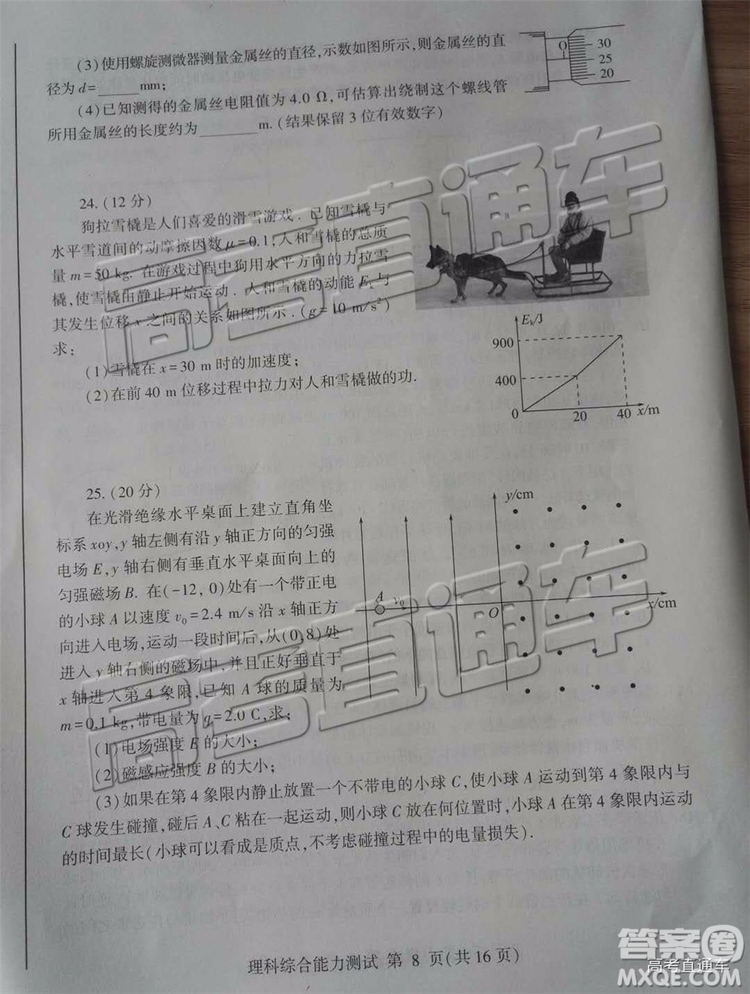 (3)使用螺旋测微器测量金属丝的直径,示数如图所示,则金属丝的直
径为d=______mm;
(4)已知测得的金属丝电阻值为4.0 Ω,可估算出绕制这个螺线管
所用金属丝的长度约为______m.(结果保留3位有效数字)
0
30
25
20
24.(12分)
狗拉雪橇是人们喜爱的滑雪游戏.已知雪橇与
水平雪道间的动摩擦因数μ=0.1,人和雪橇的总质
量m=50 kg.在游戏过程中狗用水平方向的力拉雪
橇,使雪橇由静止开始运动.人和雪橇的动能Ek与
其发生位移x之间的关系如图所示.(g=10 m/s²)
求:
(1)雪橇在x=30 m时的加速度;
(2)在前40 m位移过程中拉力对人和雪橇做的功.
Ek/J
900
400
0
20
40
x/m
25.(20分)
在光滑绝缘水平桌面上建立直角坐
标系xoy,y轴左侧有沿y轴正方向的匀强
电场E,y轴右侧有垂直桌面向上的
匀强磁场B.在(-12,0)处有一个带正电
的小球A以速度v0=2.4 m/s沿x轴正方
向进入电场,运动一段时间后,从(0,8)处进
入y轴右侧的磁场中,并且正好垂直于
x轴进入第4象限,已知A球的质量为
m=0.1 kg,带电量为q=2.0 C,求;
(1)电场强度E的大小;
(2)磁感应强度B的大小;
(3)如果在第4象限内静止放置一个不带电的小球C,使小球A运动到第4象限内与
C球发生碰撞,碰后A、C粘在一起运动,则小球C放在何位置时,小球A在第4象限内运动
的时间最长(小球可以看成是质点,不考虑碰撞过程中的电量损失).
y/cm
A
v0
O
x/cm
理科综合能力测试 第 8 页(共16页)
高考直通车
高考直通车
答案卷
高考直通车
MXQE.COM